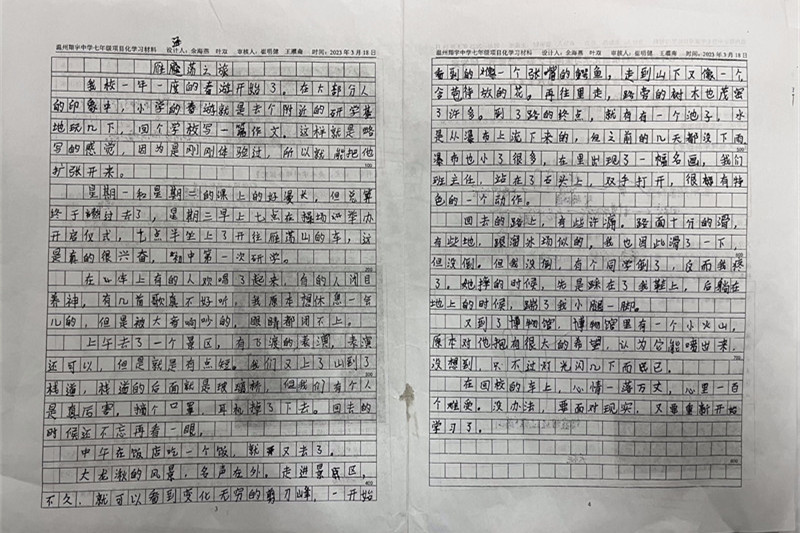 温州翔宇中学七年级项目化学习材料 设计人：余海燕 叶双 审核人：崔明健 王湘南 时间：2023年3月18日
雁荡之旅
我校一年一度的春游开始了。在大部分人
的印象中，小学的春游就是去个附近的研学基
地玩几下，回个学校写一篇作文。这样就是略
写的感觉，因为是刚刚体验过，所以就能把他
扩张开来。
星期一和星期二的课上的好漫长，但总算
终于熬过去了，星期三早上七点在操场举办
开启仪式，七点半坐上了开往雁荡山的车，这
是真的很兴奋，初中第一次研学。
在车上有的人欢唱了起来，有的人闭目
养神，有几首歌真不好听，我原本想休息一会
儿的，但是被大音响吵的，眼睛都闭不上。
上午去了一个景区，有飞渡的表演，表演
还可以，但是就是有点短。我们又上了山到了
栈道，栈道的后面就是玻璃桥，但我们有个人
是真厉害，摘个口罩，耳机掉了下去。回去的
时候还不忘再看一眼。
中午在饭店吃一个饭，就又去了。
大龙湫的风景，名声在外。走进景区，
不久，就可以看到变化无穷的剪刀峰，一开始
3
温州翔宇中学七年级项目化学习材料 设计人：余海燕 叶双 审核人：崔明健 王湘南 时间：2023年3月18日
看到的像一个张嘴的鳄鱼，走到山下又像一个
含苞待放的花。再往里走，路旁的树木也茂密
了许多。到了路的终点，就有有一个池子。水
是从瀑布上流下来的，但之前的几天都没下雨
瀑布也小了很多，在里出现了一幅名画，我们
班主任，站在了石头上，双手打开，很有特
色的一个动作。
回去的路上，有些许潮。路面十分的滑，
有些地，跟溜冰场似的。我也因此滑了一下，
但没倒。但我没倒，有个同学倒了，反而我疼
了。她摔的时候，先是踩在了我鞋上，后躺在
地上的时候，踹了我小腿一脚。
又到了博物馆，博物馆里有一个小火山，
原本对他抱有很大的希望，认为它能喷出来，
没想到，只不过灯光闪几下而已。
在回校的车上，心情一落万丈，心里一百
个难受。没办法，要面对现实，又要重新开始
学习了。
4